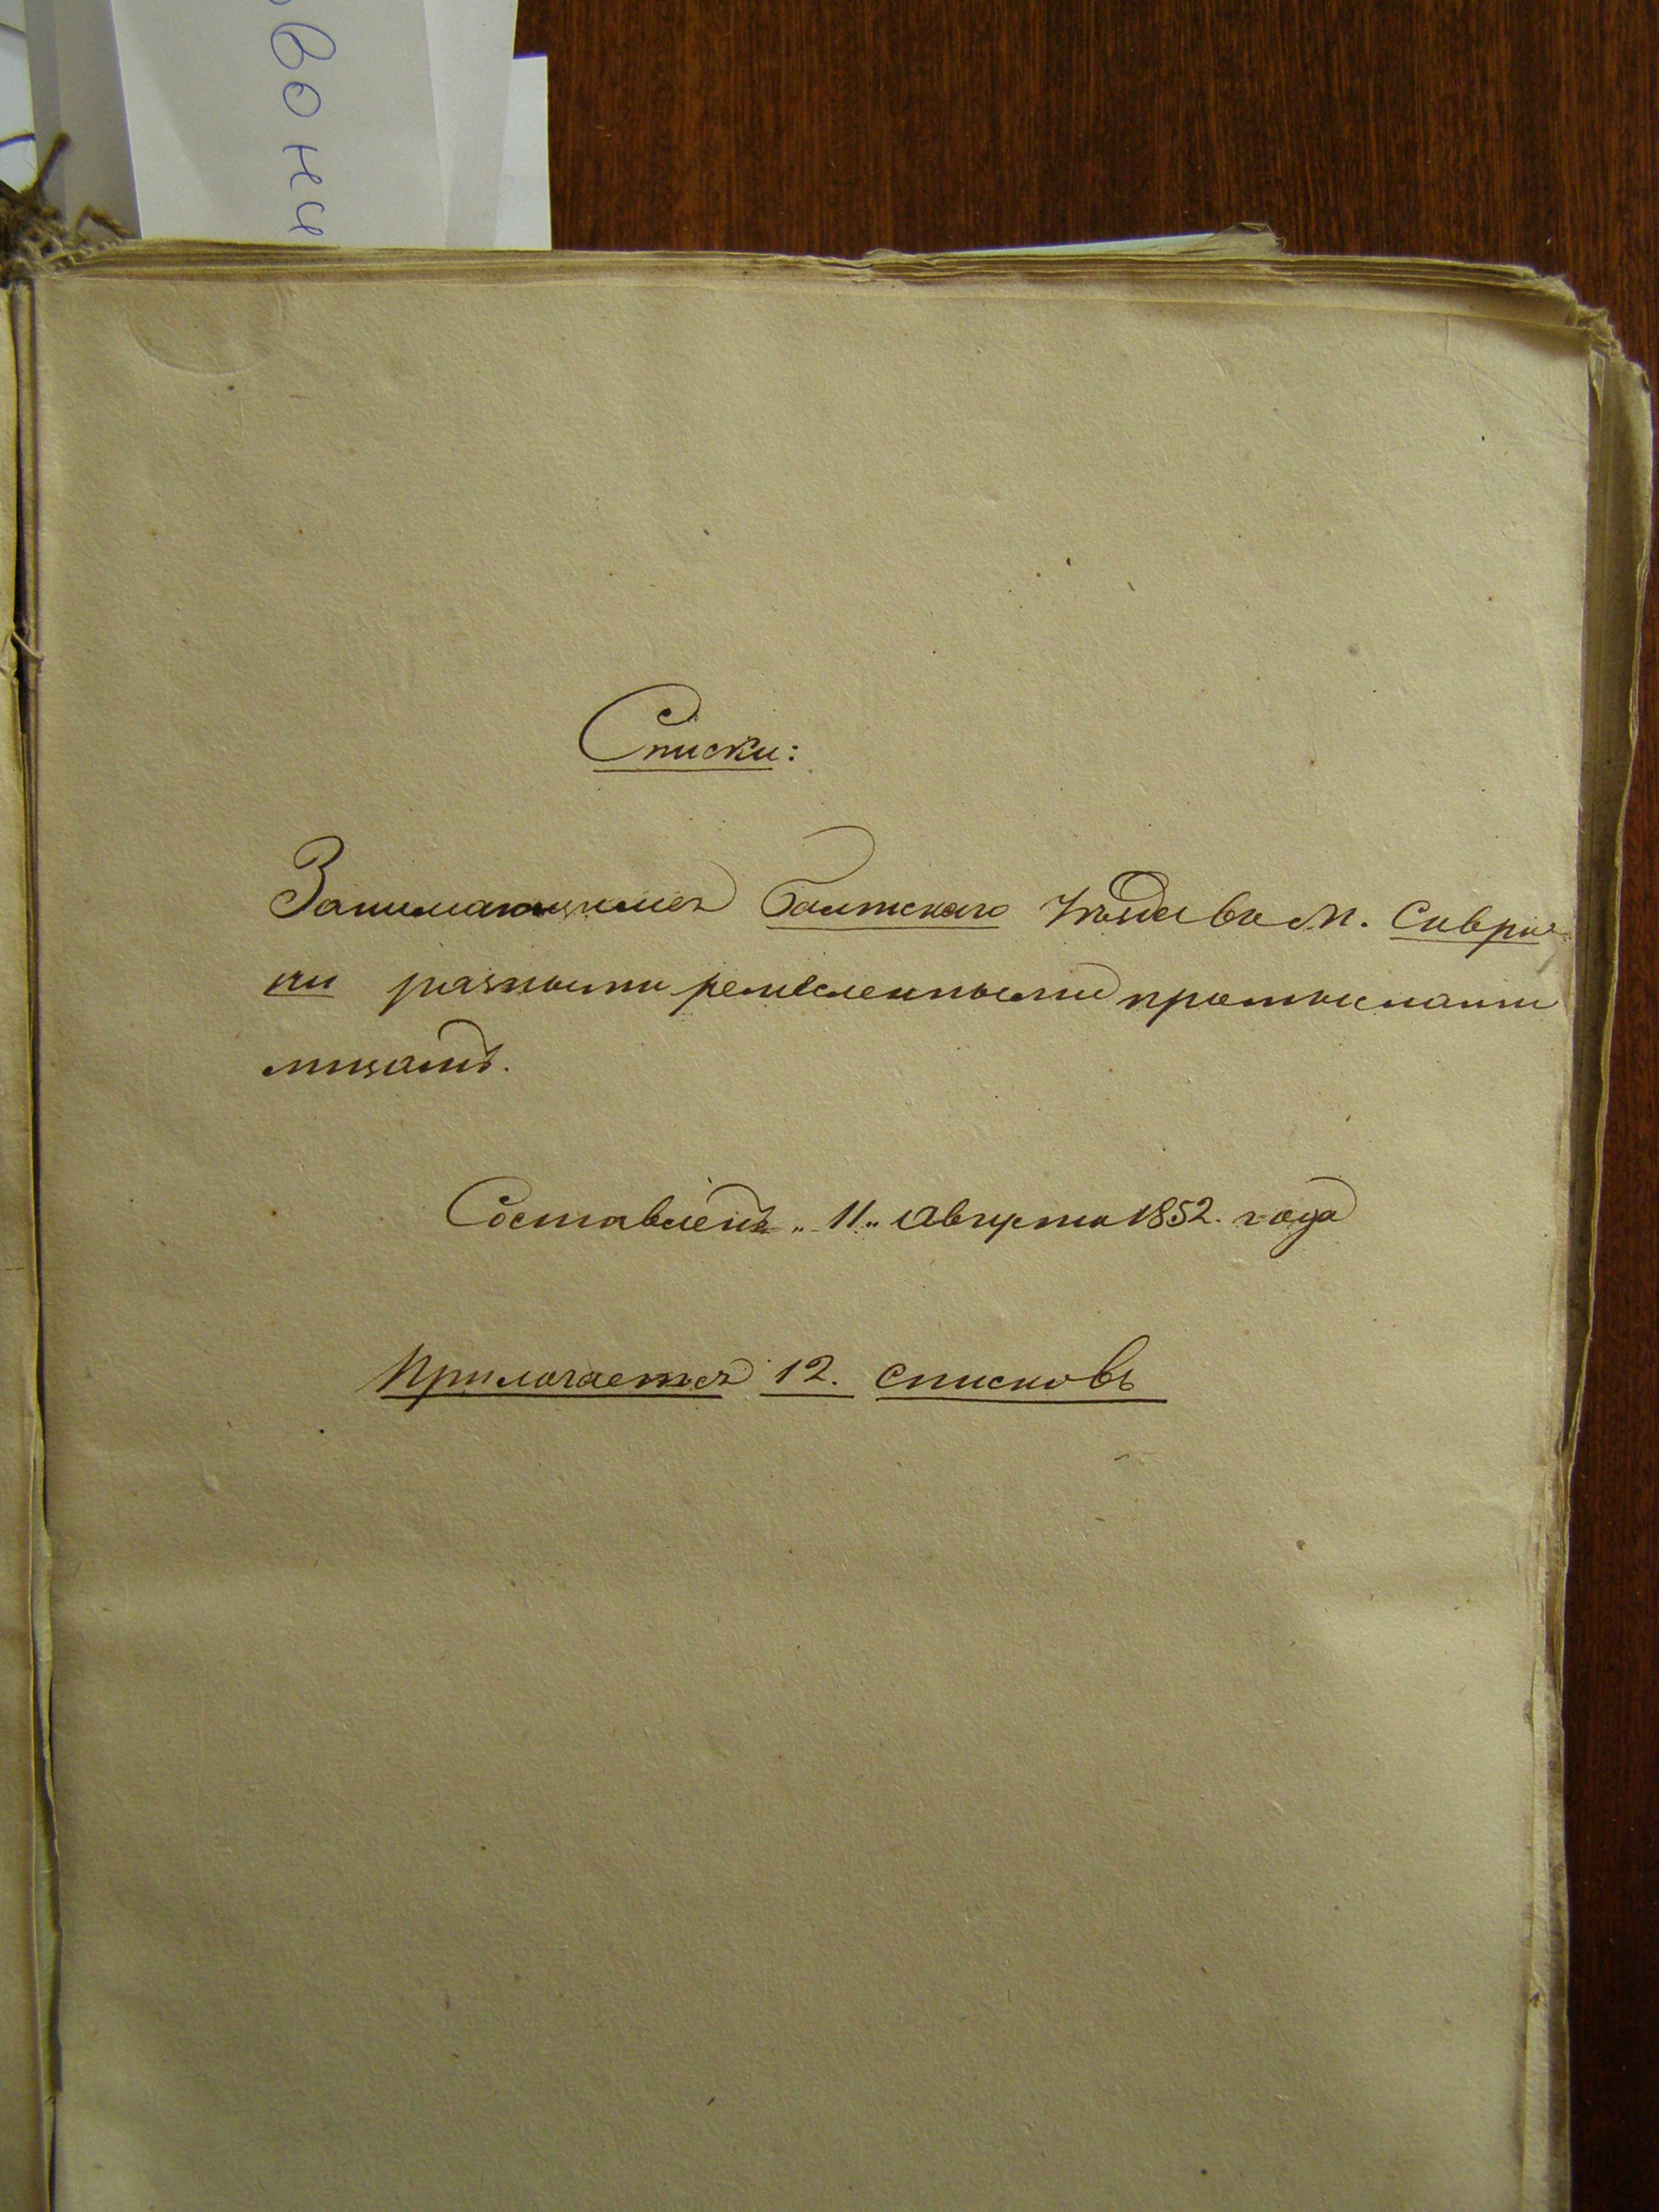 вони
Списки:
Занимающимся Балтскаго Уѣзда въ М. Савра-
ни разными ремесленными промыслами
лицамъ.
Составленъ „11„ Августа 1852. года
Прилогается 12. списковъ